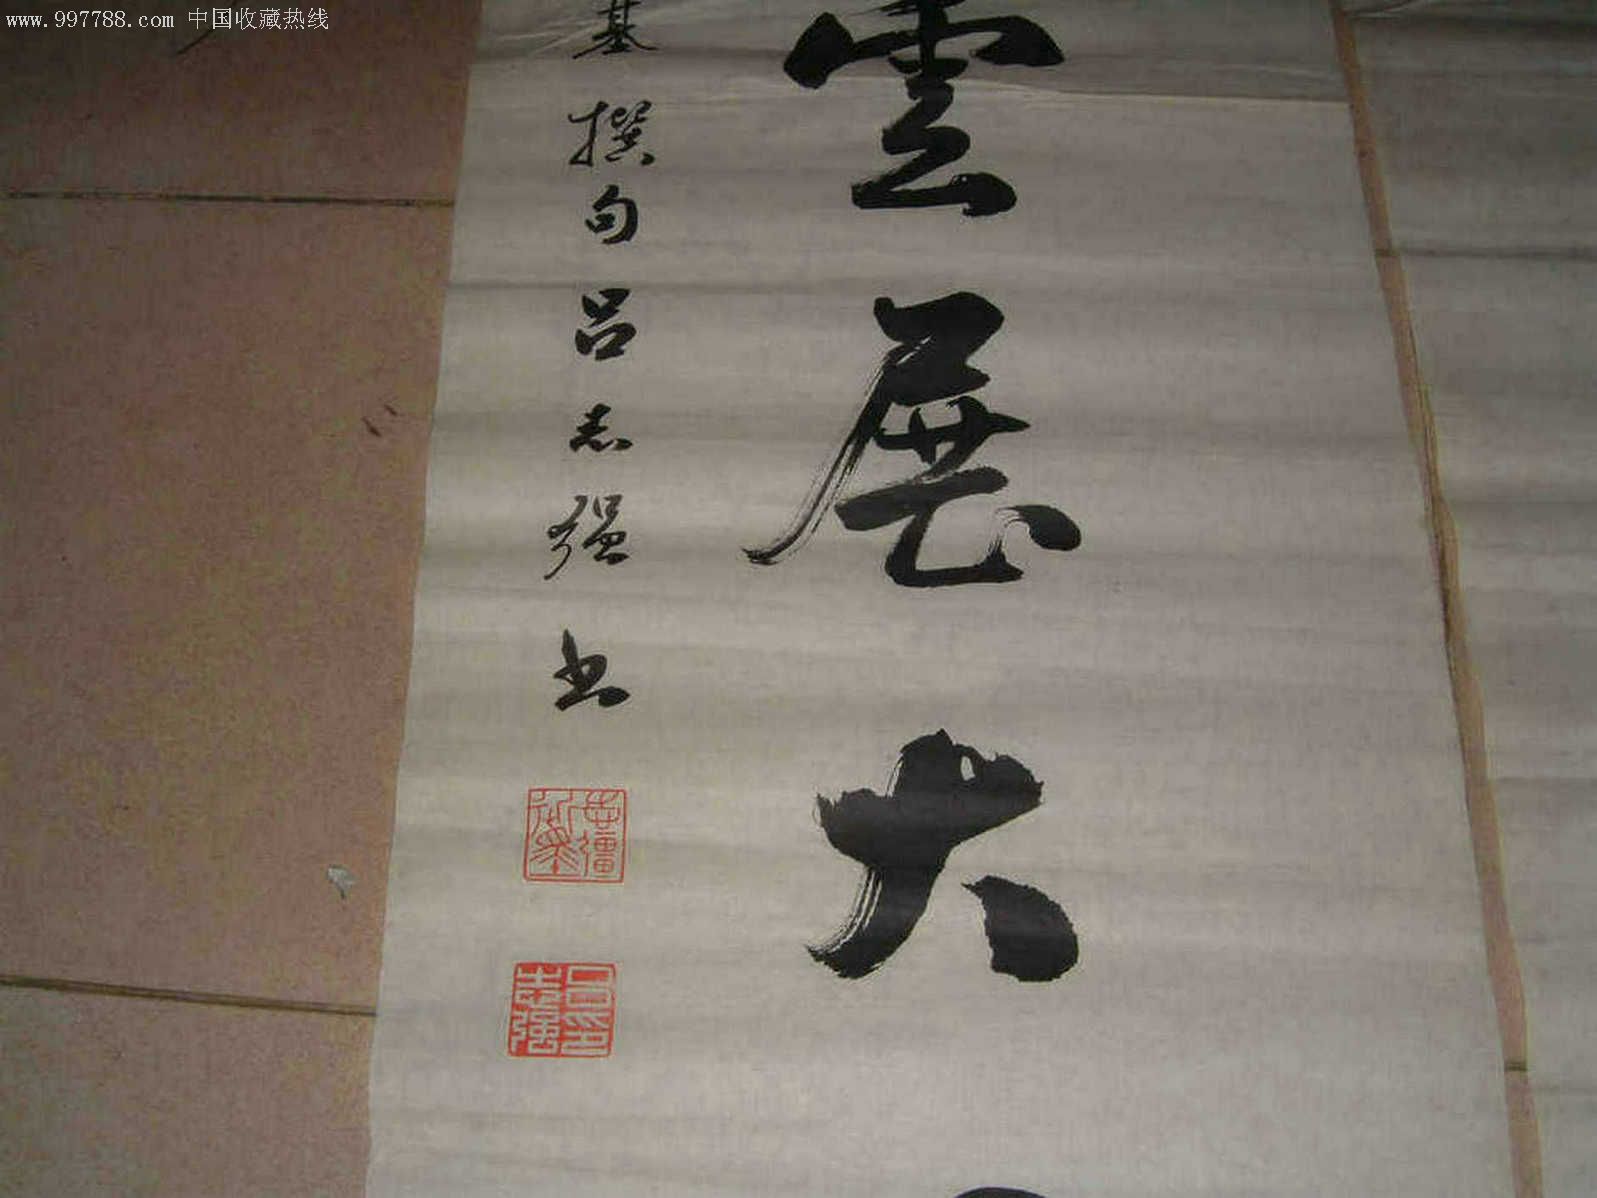 www.997788.com 中国收藏热线
雲展大
基撰句吕志强书
吕志强印